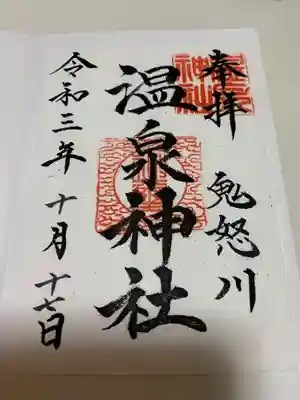 奉拝 鬼怒川
温泉神社
令和三年 十月 十七日